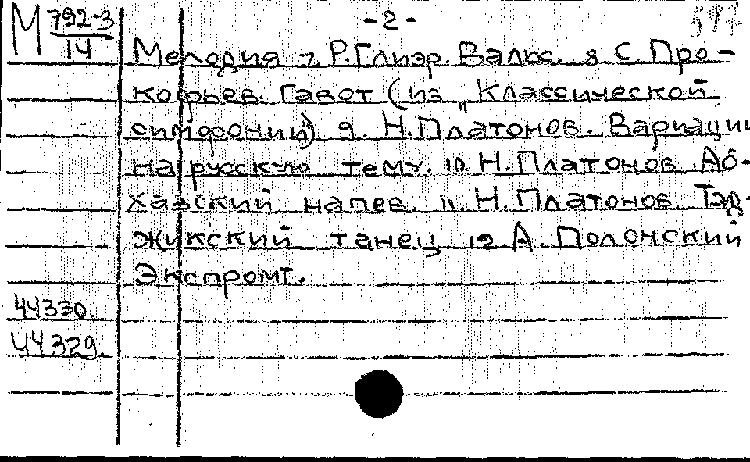 М 792-3
14
-2-
597
Мелодия 7. Р. Глиэр. Вальс. 8 С. Про-
кофьев. Гавот (из „Классической
симфонии) 9. Н. Платонов. Вариации
на русскую тему. 10. Н. Платонов. Аб-
хазский напев. 11. Н. Платонов. Тад-
жикский танец 12 А. Полонский
Экспромт.
44330.
44329.